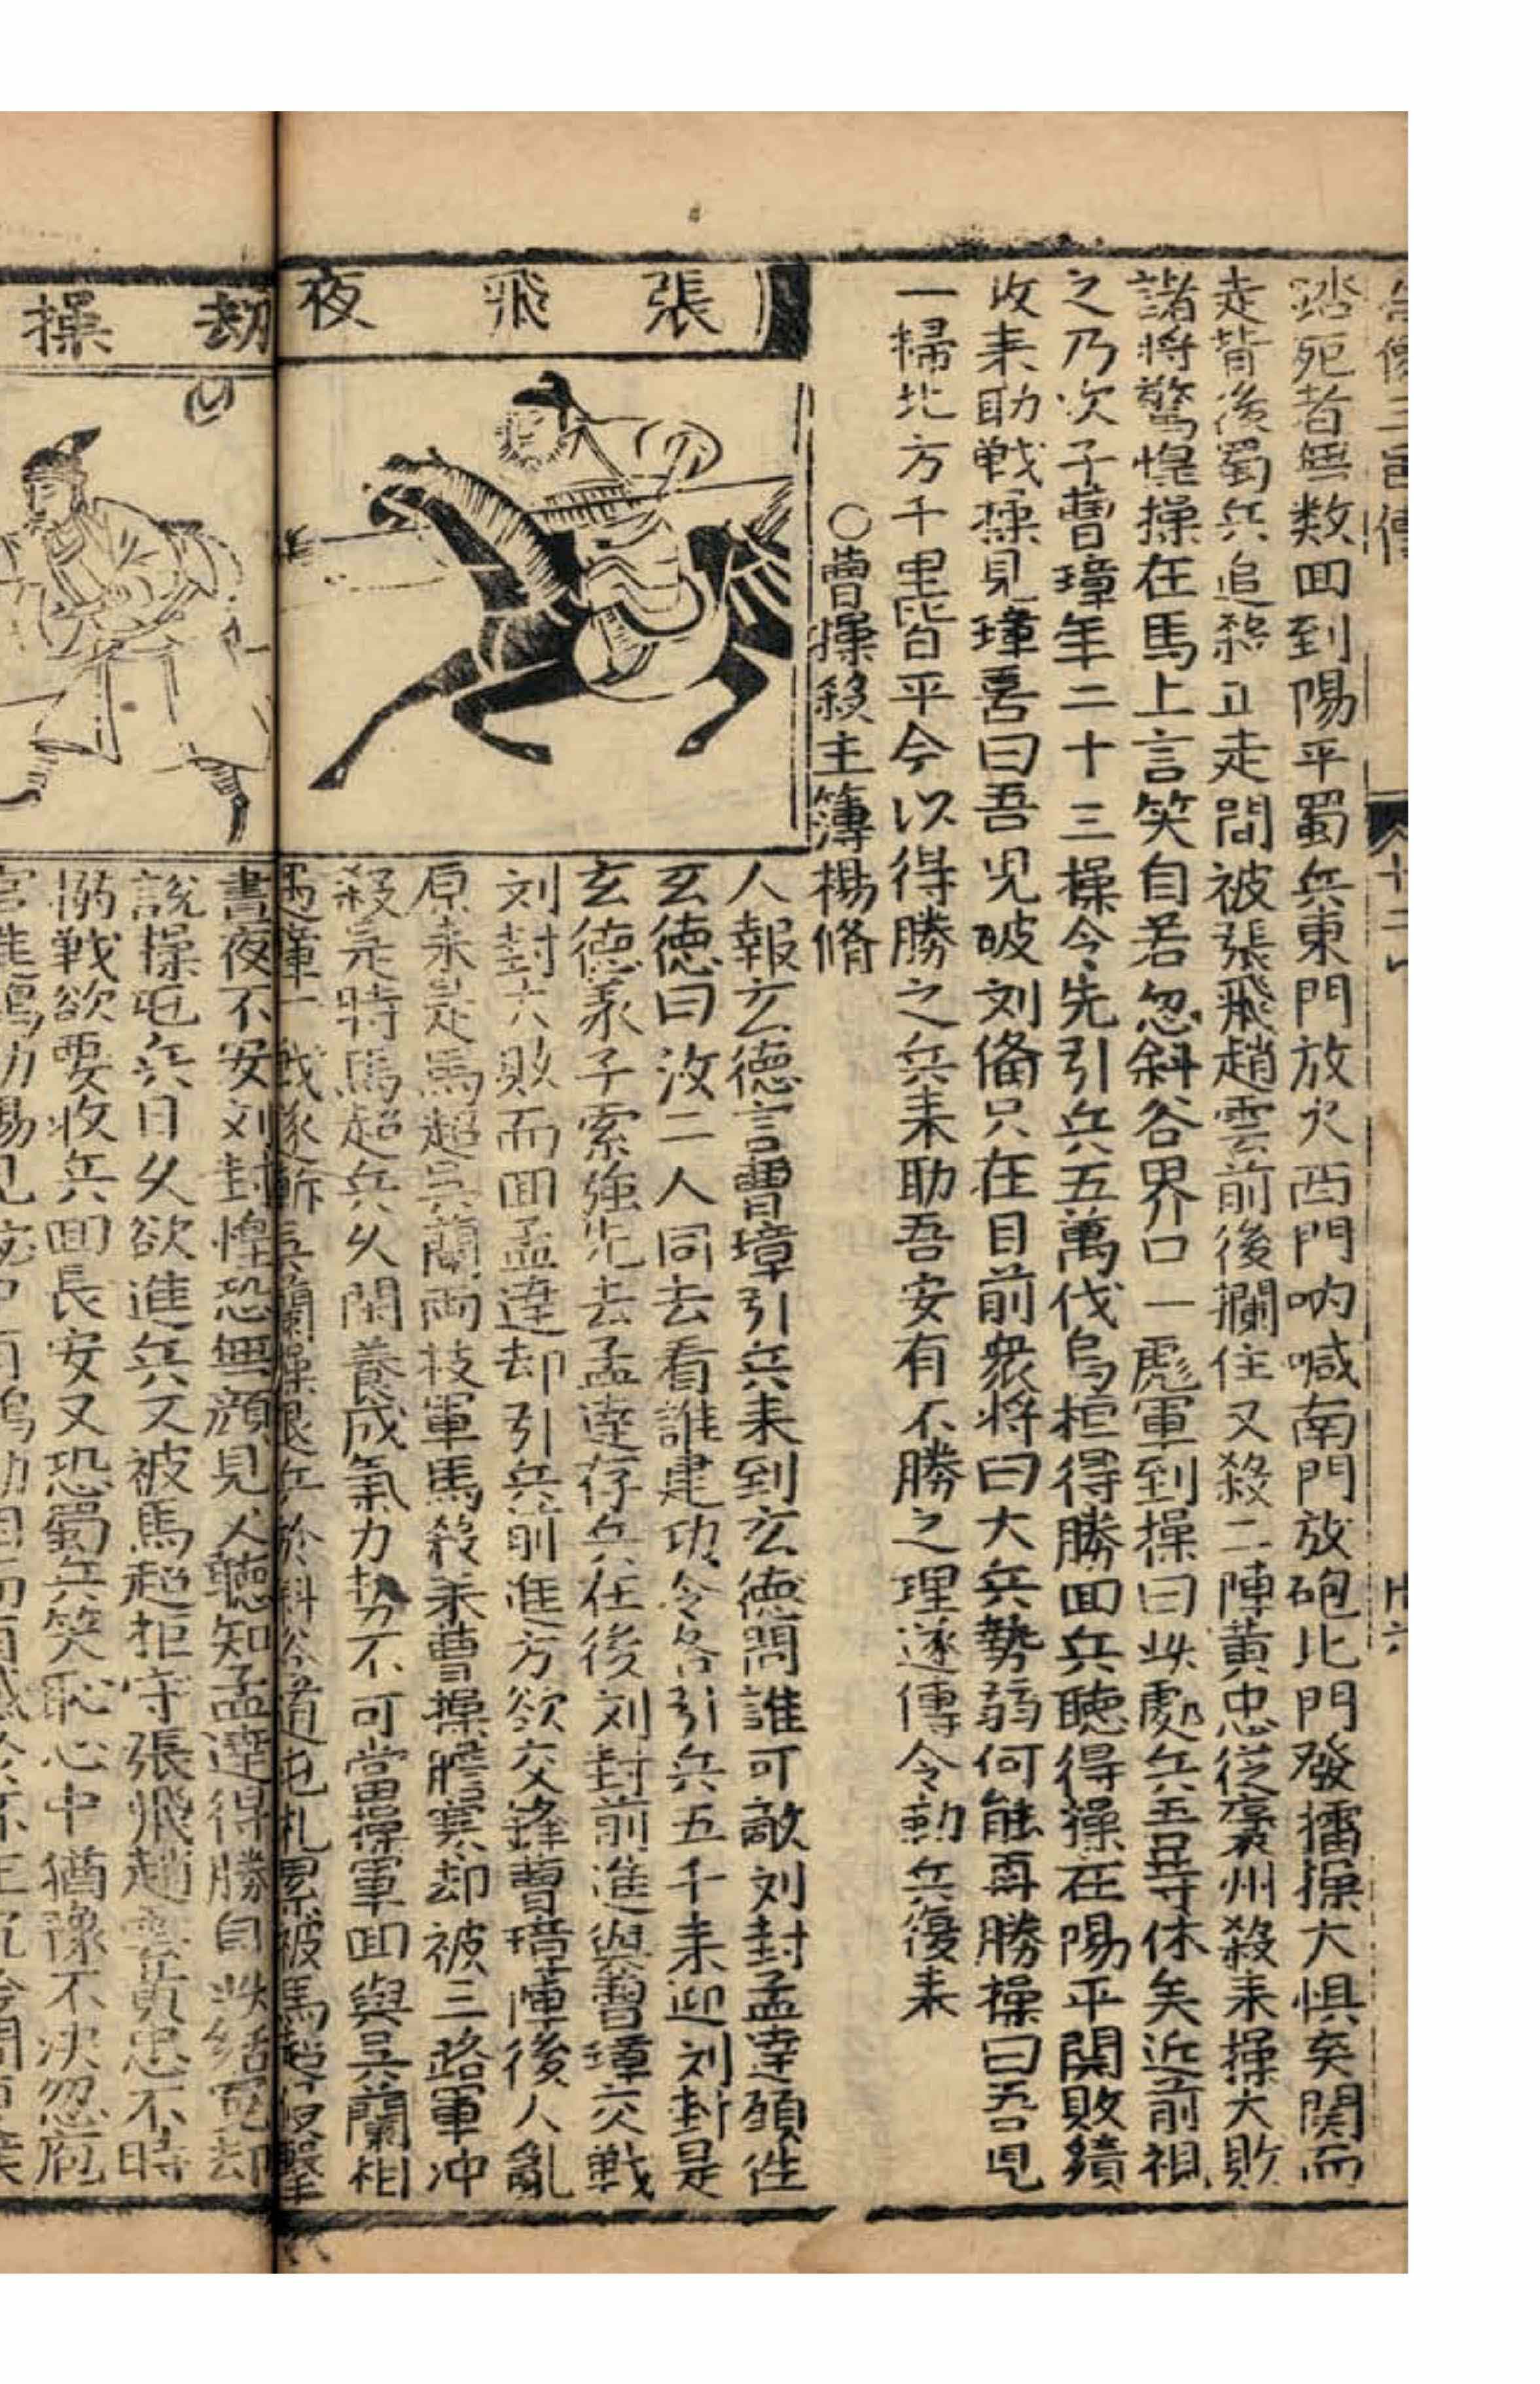 踏死者無数回到陽平蜀兵東門放火西門吶喊南門放砲北門發擂操大惧矣関而
走背後蜀兵追殺正走間被張飛趙雲前後攔住又殺二陣黄忠從褒州殺来操大敗
諸將驚惶操在馬上言笑自若忽斜谷界口一彪軍到操曰此處兵五㝵休矣近前視
之乃次子曹璋年二十三操令先引兵五萬伐烏桓得勝回兵聽得操在陽平関敗績
收来助戦操見璋喜曰吾児破刘俻只在目前衆將曰大兵勢弱何能再勝操曰吾児
一掃北方千里皆平今以得勝之兵来助吾安有不勝之理遂傳令勒兵復来
○曹操殺主簿楊脩
張飛夜
人報玄德言曹璋引兵来到玄德問誰可敵刘封孟達願徃
玄德曰汝二人同去看誰建功令各引兵五千来迎刘封是
玄德義子索強先去孟達存兵在後刘封前進與曹璋交戦
刘封大敗而回孟達却引兵前進方欲交鋒曹璋陣後人亂
原来是馬超吳蘭两枝軍馬殺来曹操膽寒却被三路軍冲
殺完時馬超兵久閑養成氣力势不可當操軍回與吳蘭相
遇璋一戟遂斬吳蘭操退兵於斜谷道屯札累被馬超攻擊
劫操
晝夜不安刘封惶恐無顔見人聽知孟達得勝自此結寃却
說操屯兵日久欲進兵又被馬超拒守張飛趙雲黄忠不時
搦戦欲要收兵回長安又恐蜀兵笑恥心中猶豫不决忽庖